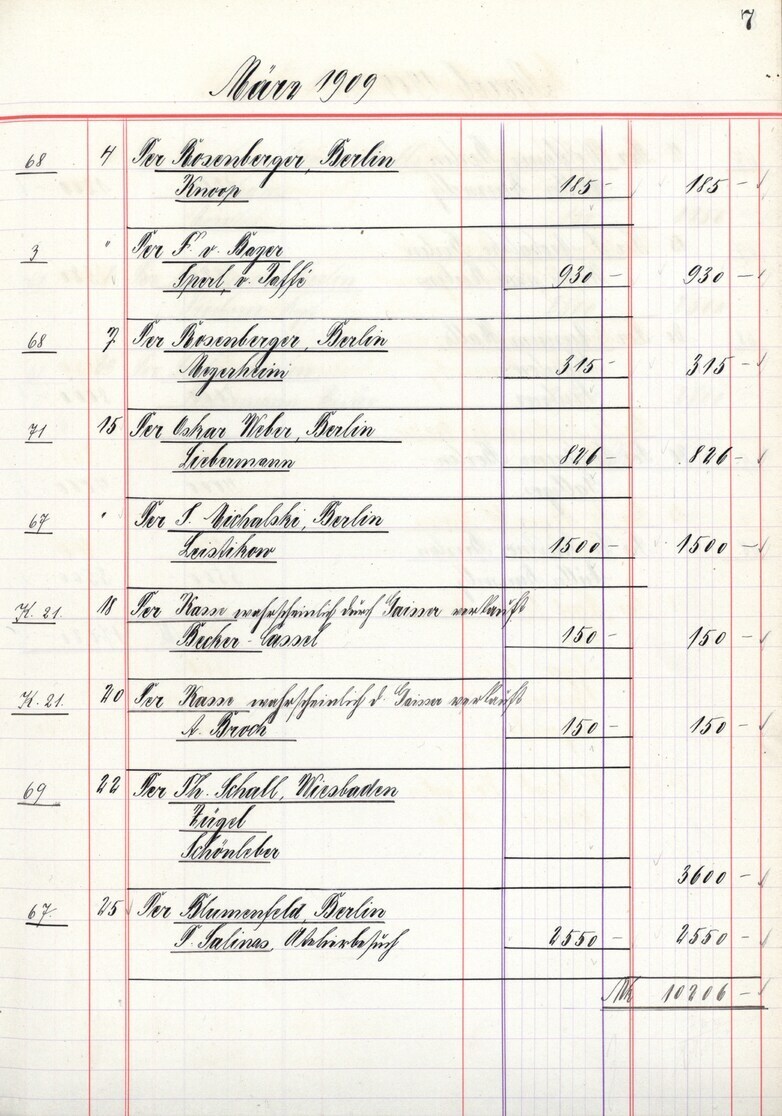 7
März 1909
68 4 Per Rosenberger, Berlin
Knoop 185 - 185 -
3 " Per F. v. Bayer
Sperl, v. Jaffé 930 - 930 -
68 7 Per Rosenberger, Berlin
Meyerheim 315 - 315 -
71 15 Per Oskar Weber, Berlin
Liebermann 826 - 826 -
67 " Per S. Michalski, Berlin
Leistikow 1500 - 1500 -
K. 21. 18 Per Kasse wahrscheinlich durch Gaisser verkauft
Becker-Cassel 150 - 150 -
K. 21. 20 Per Kasse wahrscheinlich d. Gaisser verkauft
A. Broch 150 - 150 -
69 22 Per Th. Schall, Wiesbaden
Zügel
Schönleber
3600 -
67. 25 Per Blumenfeld, Berlin
P. Salinas, Atelierbesuch 2550 - 2550 -
Mk 10206 -